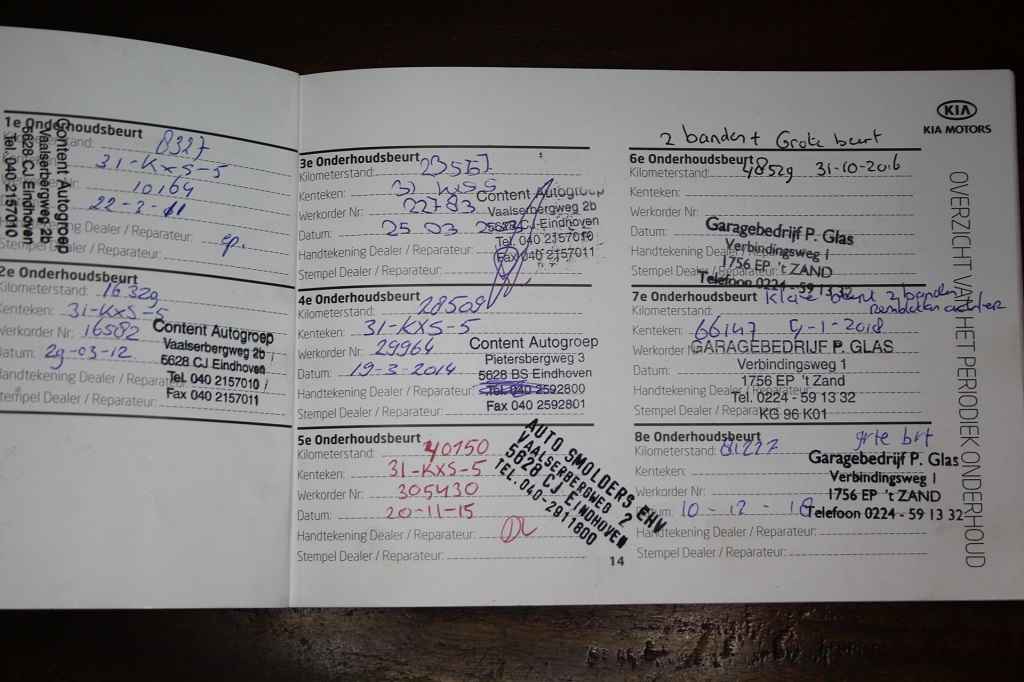 1e Onderhoudsbeurt
Kilometerstand: 8327
31-KXS-5
10164
22-3-11
Handtekening Dealer / Reparateur: ep.
Stempel Dealer / Reparateur:
Content Autogroep
Vaalserbergweg 2b
5628 CJ Eindhoven
Tel. 040 2157010
2e Onderhoudsbeurt
Kilometerstand: 16329
Kenteken: 31-KXS-5
Werkorder Nr: 16582
Datum: 29-03-12
Handtekening Dealer / Reparateur:
Stempel Dealer / Reparateur:
Content Autogroep
Vaalserbergweg 2b
5628 CJ Eindhoven
Tel. 040 2157010
Fax 040 2157011
3e Onderhoudsbeurt
Kilometerstand: 23567
Kenteken: 31 KXS5
Werkorder Nr: 22783
Datum: 25 03
Handtekening Dealer / Reparateur:
Stempel Dealer / Reparateur:
Content Autogroep
Vaalserbergweg 2b
5628 CJ Eindhoven
Tel. 040 2157010
Fax 040 2157011
4e Onderhoudsbeurt
Kilometerstand: 28509
Kenteken: 31-KXS-5
Werkorder Nr: 29964
Datum: 19-3-2014
Handtekening Dealer / Reparateur:
Stempel Dealer / Reparateur:
Content Autogroep
Pietersbergweg 3
5628 BS Eindhoven
Tel. 040 2592800
Fax 040 2592801
5e Onderhoudsbeurt
Kilometerstand: 40150
Kenteken: 31-KXS-5
Werkorder Nr: 305430
Datum: 20-11-15
Handtekening Dealer / Reparateur:
Stempel Dealer / Reparateur:
AUTO SMOLDERS EHV
VAALSERBERGWEG 2
5628 CJ EINDHOVEN
TEL. 040-2911800
14
2 banden + Grote beurt
6e Onderhoudsbeurt
Kilometerstand: 48529 31-10-2016
Kenteken:
Werkorder Nr:
Datum:
Handtekening Dealer / Reparateur:
Stempel Dealer / Reparateur:
Garagebedrijf P. Glas
Verbindingsweg 1
1756 EP 't ZAND
Telefoon 0224 - 59 13 32
7e Onderhoudsbeurt Kleine beurt 2 banden
remblokken achter
Kilometerstand:
Kenteken: 66147 9-1-2018
Werkorder Nr:
Datum:
Handtekening Dealer / Reparateur:
Stempel Dealer / Reparateur:
GARAGEBEDRIJF P. GLAS
Verbindingsweg 1
1756 EP 't Zand
Tel. 0224 - 59 13 32
KG 96 K01
8e Onderhoudsbeurt grte brt
Kilometerstand: 81227
Kenteken:
Werkorder Nr:
Datum: 10 - 12 - 18
Handtekening Dealer / Reparateur:
Stempel Dealer / Reparateur:
Garagebedrijf P. Glas
Verbindingsweg 1
1756 EP 't ZAND
Telefoon 0224 - 59 13 32
KIA
KIA MOTORS
OVERZICHT VAN HET PERIODIEK ONDERHOUD